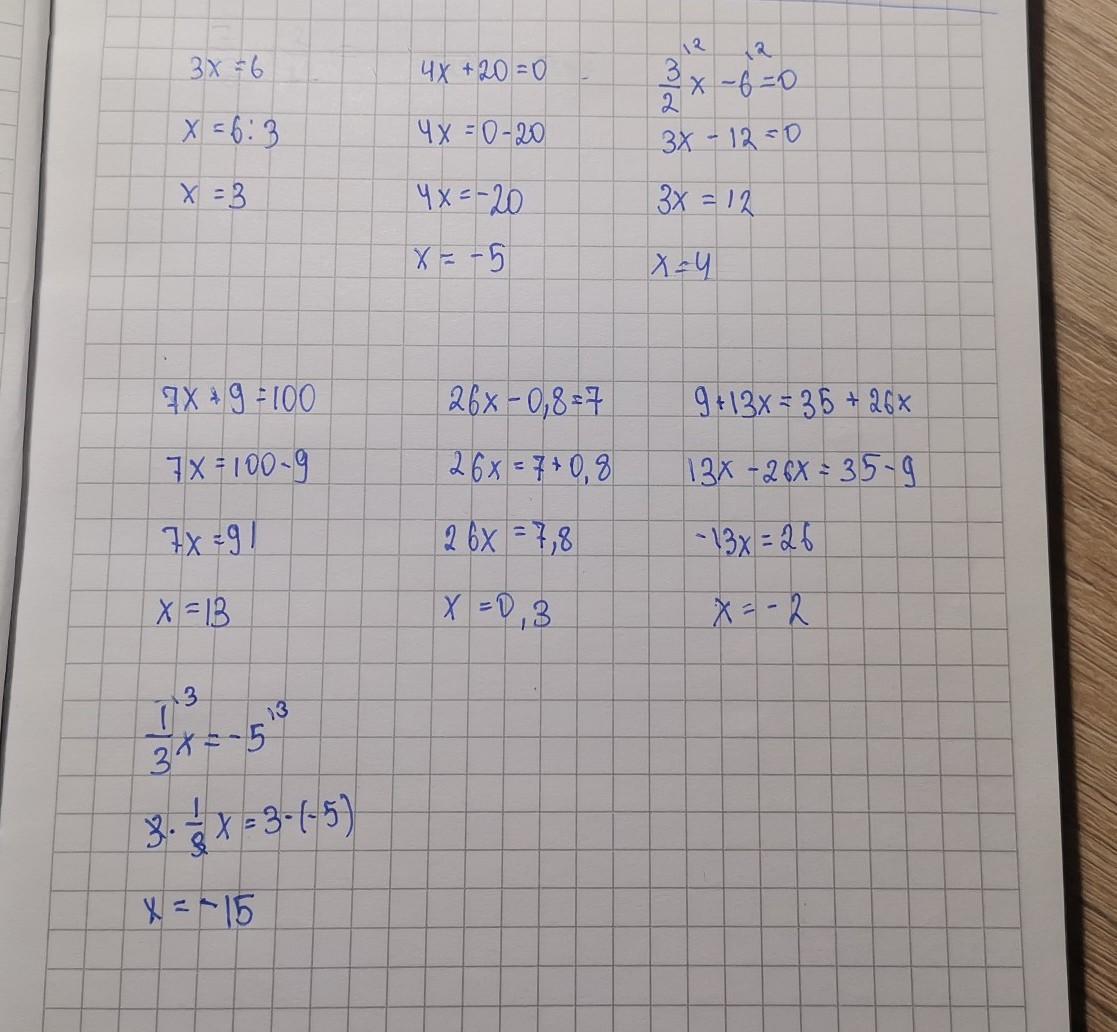 3x = 6
x = 6 : 3
x = 3
4x + 20 = 0
4x = 0 - 20
4x = -20
x = -5
\2 \2
3/2 x - 6 = 0
3x - 12 = 0
3x = 12
x = 4
7x + 9 = 100
7x = 100 - 9
7x = 91
x = 13
26x - 0,8 = 7
26x = 7 + 0,8
26x = 7,8
x = 0,3
9 + 13x = 35 + 26x
13x - 26x = 35 - 9
-13x = 26
x = -2
\3 \3
1/3 x = -5
3 · 1/3 x = 3 · (-5)
x = -15